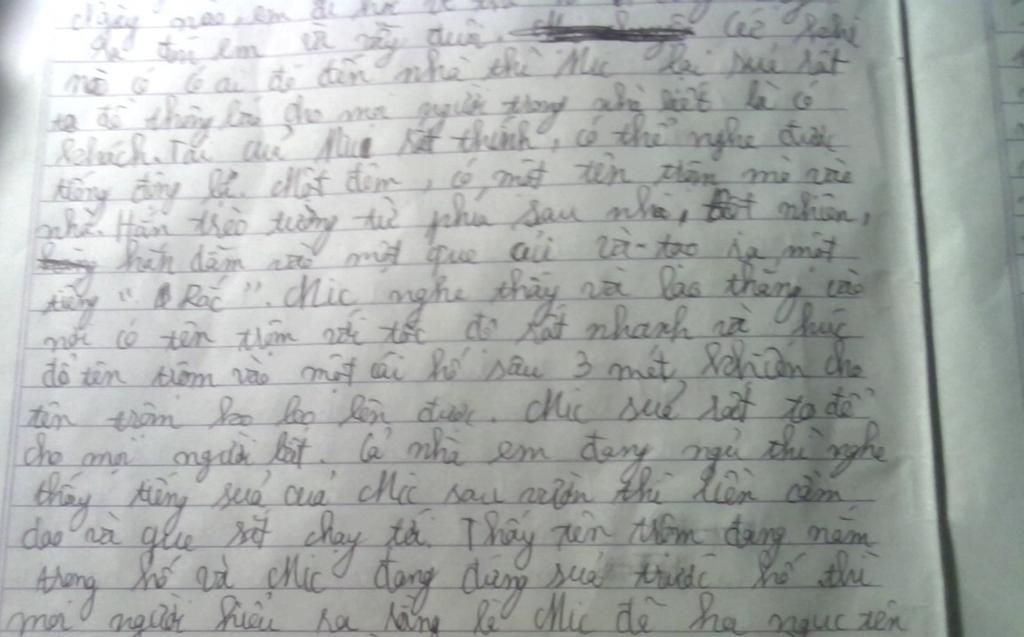 ngày nào, em đi học về
ra đón em và vẫy đuôi. Cứ khi
mà có ai đó đến nhà thì Mic lại suả rất
to để thông báo cho mọi người trong nhà biết là có
khách. Tai cuả Mic rất thính, có thể nghe được
tiếng động . Một đêm, có một tên trộm mò vào
nhà. Hắn trèo tường từ phiá sau nhà, bất nhiên,
hắn dẫm vào một que củi và tạo ra một
tiếng " Rắc ". Mic nghe thấy và lao thẳng vào
nơi có tên trộm với tốc độ rất nhanh và húc
đổ tên trộm vào một cái hố sâu 3 mét khiến cho
tên trộm leo lên được. Mic suả rất to để
cho mọi người biết. Cả nhà em đang ngủ thì nghe
thấy tiếng suả cuả Mic sau vườn thì liền cầm
dao và que sắt chạy tới. Thấy tên trộm đang nằm
trong hố và Mic đang đứng suả trước hố thì
mọi người hiểu ra rằng là Mic đã hạ ngục tên